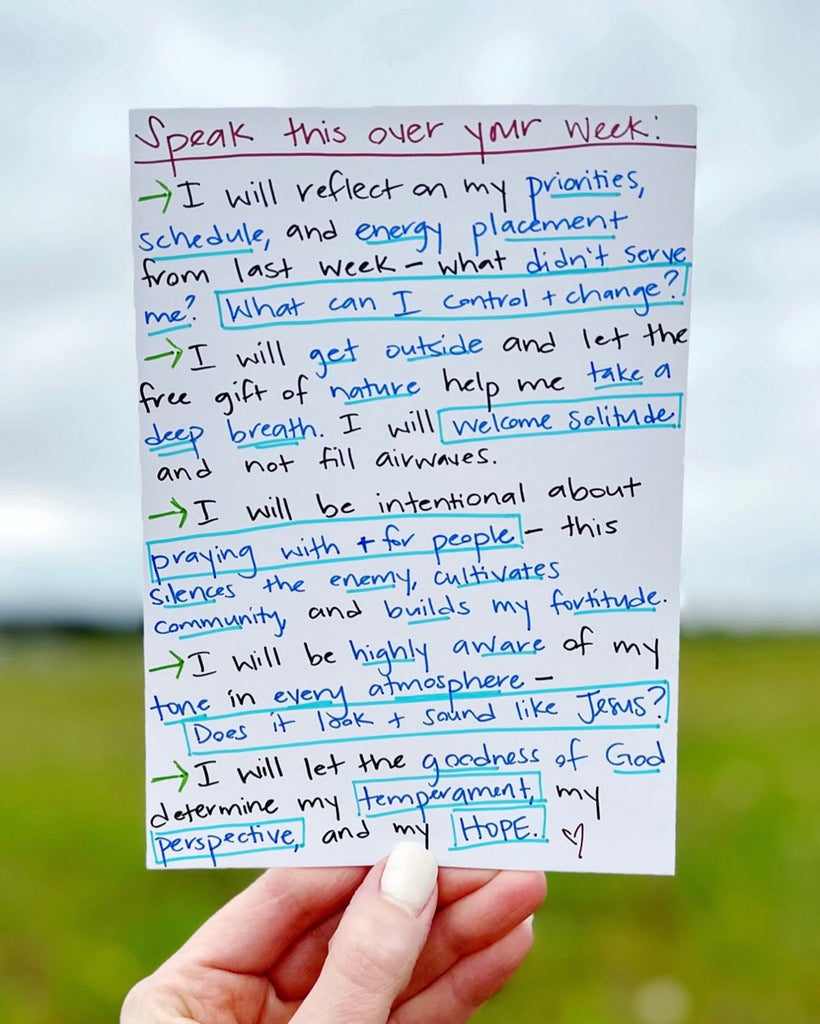 Speak this over your week:
→ I will reflect on my priorities,
schedule, and energy placement
from last week – what didn't serve
me? What can I control + change?
→ I will get outside and let the
free gift of nature help me take a
deep breath. I will welcome solitude
and not fill airwaves.
→ I will be intentional about
praying with + for people – this
silences the enemy, cultivates
community, and builds my fortitude.
→ I will be highly aware of my
tone in every atmosphere –
Does it look + sound like Jesus?
→ I will let the goodness of God
determine my temperament, my
perspective, and my HOPE. ♡